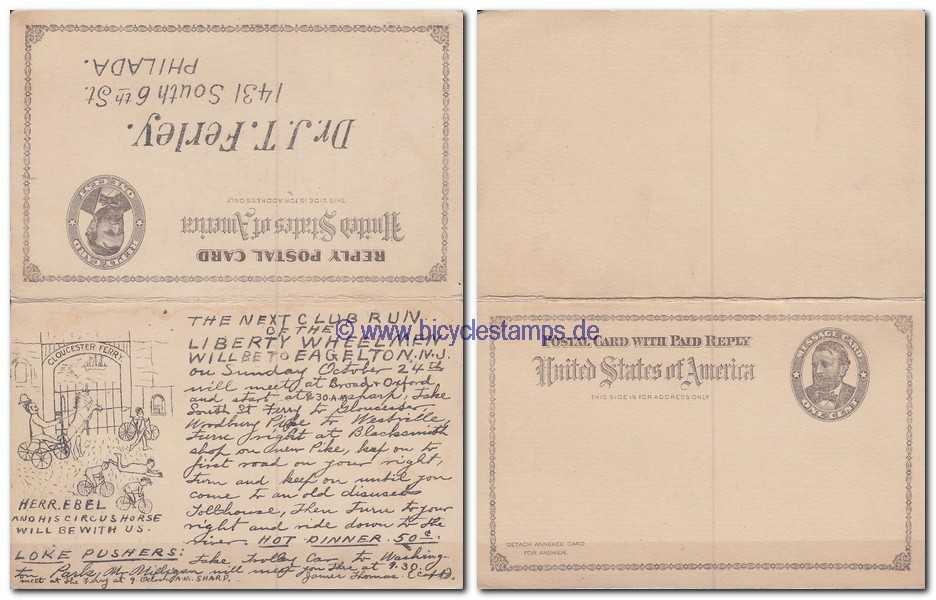 REPLY POSTAL CARD
United States of America
THIS SIDE IS FOR ADDRESS ONLY
REPLY CARD
ONE CENT
Dr. J. T. Ferley.
1431 South 6th St.
PHILADA.
© www.bicyclestamps.de
GLOUCESTER FERRY
HERR, EBEL
AND HIS CIRCUS HORSE
WILL BE WITH US.
THE NEXT CLUB RUN
OF THE
LIBERTY WHEELMEN
WILL BE TO EAGELTON. N.J.
on Sunday October 24th
will meet at Broad & Oxford
and start at 8.30 A.M. sharp, take
South St Ferry to Gloucester
Woodbury Pike to Westville
turn right at Blacksmith
shop on new Pike, keep on to
first road on your right,
turn and keep on until you
come to an old disused
Tollhouse, then turn to your
right and ride down to the
river. HOT DINNER. 50¢.
LOKE PUSHERS:
take Trolley Car to Washing-
ton Park, Mr Milligan will meet you there at 9.30.
meet at the at 9 A.M. SHARP.
James Thomas. (Capt).
POSTAL CARD WITH PAID REPLY
United States of America
THIS SIDE IS FOR ADDRESS ONLY
MESSAGE CARD
ONE CENT
DETACH ANNEXED CARD
FOR ANSWER